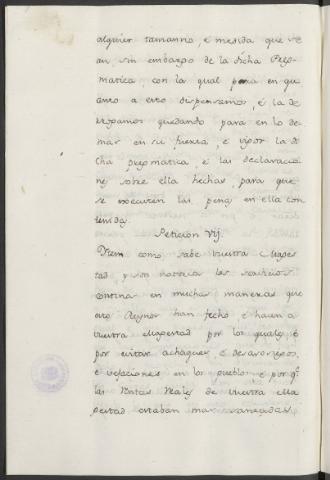 alquier tamanno, é medida que se
an, sin embargo de la dicha Preg-
matica, con la qual para en qu
anto a esto dispensamos, é la de
rogamos quedando para en lo de
mas en su fuerza, é vigor la di
cha pregmatica, é las declaracio
nes sobre ella hechas, para que
se executen las penas en ella con
tenidas.
Peticion Vij.
Item como sabe Vuestra Mages
tad, y son notorios los servicios
continos en muchas maneras que
estos Reynos han fecho, é hacen a
Vuestra Magestad por los quales é
por evitar achaques, é desasosiegos,
é vejaciones en los pueblos, é por q.e
las Rentas Reales de Vuestra Ma
gestad estaban mas saneadas